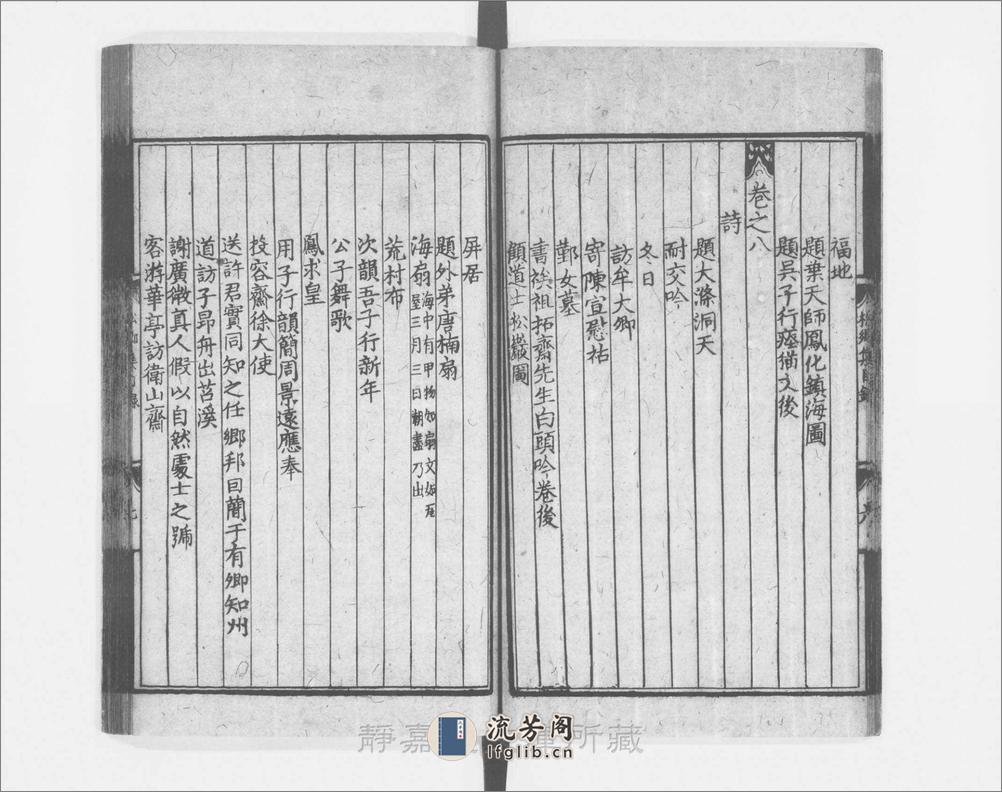 福地
題葉天師鳳化鎮海圖
題吳子行瘞猫文後
卷之八
詩
題大滌洞天
耐交吟
冬日
訪牟大卿
寄陳宣慰祐
鄞女墓
書族祖拓齋先生白頭吟卷後
顧道士松巖圖
屏居
題外弟唐楠扇
海扇 海中有甲物如扇文如瓦屋三月三日潮盡乃出
荒村布
次韻吾子行新年
公子舞歌
鳳求皇
用子行韻簡周景遠應奉
投容齋徐大使
送許君實同知之任鄉邦回簡于有卿知州
道訪子昂舟出苕溪
謝廣微真人假以自然處士之號
客游華亭訪衛山齋
靜嘉
所藏
流芳阁
lfglib.cn